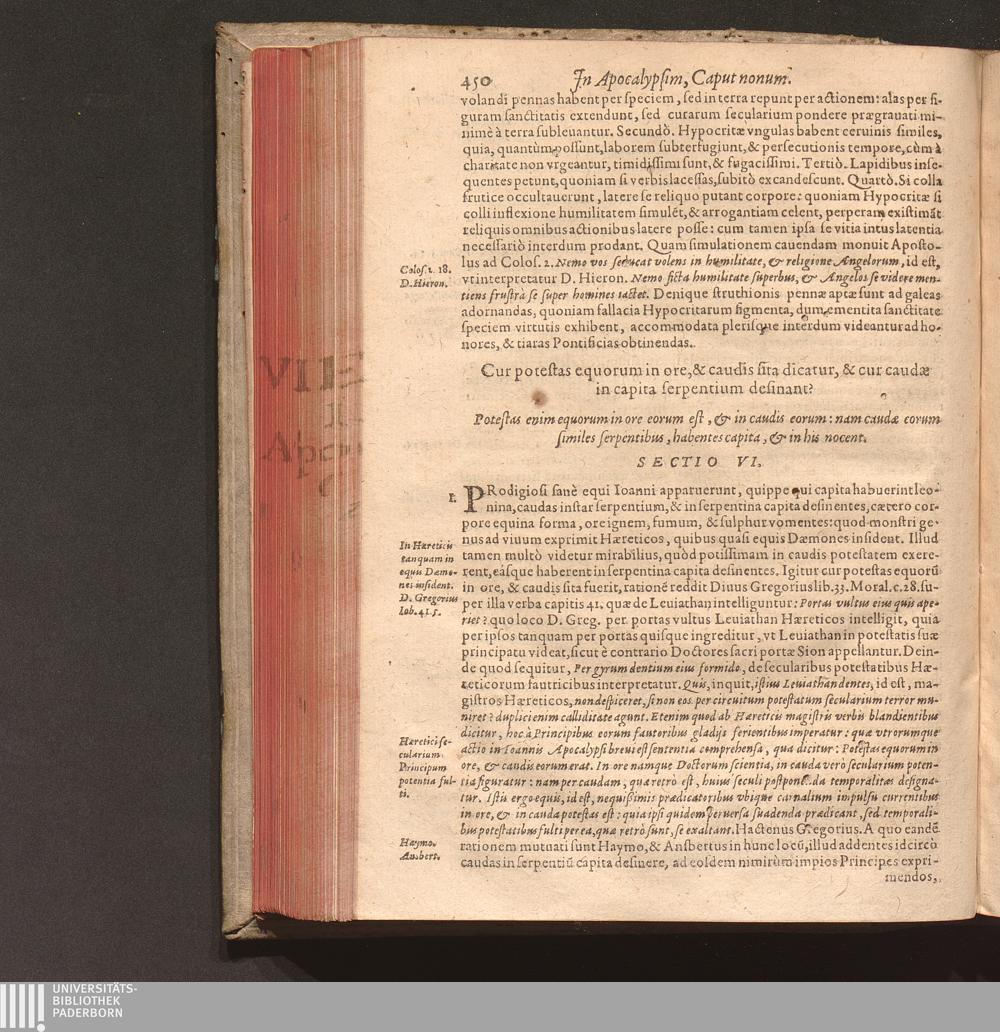 450 In Apocalypsim, Caput nonum.
volandi pennas habent per speciem, sed in terra repunt per actionem: alas per fi-
guram sanctitatis extendunt, sed curarum secularium pondere prægrauati mi-
nimè à terra subleuantur. Secundò. Hypocritæ vngulas habent ceruinis similes,
quia, quantùm possunt, laborem subterfugiunt, & persecutionis tempore, cùm à
charitate non vrgeantur, timidissimi sunt, & fugacissimi. Tertiò. Lapidibus inse-
quentes petunt, quoniam si verbis lacessas, subitò excandescunt. Quartò. Si colla
frutice occultauerunt, latere se reliquo putant corpore: quoniam Hypocritæ si
colli inflexione humilitatem simulẽt, & arrogantiam celent, perperam existimãt
reliquis omnibus actionibus latere posse: cum tamen ipsa se vitia intus latentia
necessariò interdum prodant. Quam simulationem cauendam monuit Aposto-
lus ad Colos. 2. Nemo vos seducat volens in humilitate, & religione Angelorum, id est,
Colos. 2. 18.
vt interpretatur D. Hieron. Nemo ficta humilitate superbus, & Angelos se videre men-
D. Hieron.
tiens frustrà se super homines iactet. Denique struthionis pennæ aptæ sunt ad galeas
adornandas, quoniam fallacia Hypocritarum figmenta, dum ementita sanctitate
speciem virtutis exhibent, accommodata plerisque interdum videantur ad ho-
nores, & tiaras Pontificias obtinendas.
Cur potestas equorum in ore, & caudis sita dicatur, & cur caudæ
in capita serpentium desinant?
Potestas enim equorum in ore eorum est, & in caudis eorum: nam caudæ eorum
similes serpentibus, habentes capita, & in his nocent.
SECTIO VI.
I.
PRodigiosi sanè equi Ioanni apparuerunt, quippe qui capita habuerint leo-
nina, caudas instar serpentium, & in serpentina capita desinentes, cætero cor-
pore equina forma, ore ignem, fumum, & sulphur vomentes: quod monstri ge-
nus ad viuum exprimit Hæreticos, quibus quasi equis Dæmones insident. Illud
tamen multò videtur mirabilius, quòd potissimam in caudis potestatem exere-
rent, eásque haberent in serpentina capita desinentes. Igitur cur potestas equorũ
in ore, & caudis sita fuerit, rationẽ reddit Diuus Gregorius lib. 33. Moral. c. 28. su-
per illa verba capitis 41. quæ de Leuiathan intelliguntur: Portas vultus eius quis ape-
riet? quo loco D. Greg. per portas vultus Leuiathan Hæreticos intelligit, quia
In Hæreticis
tanquam in
equis Dæmo-
nes insident.
D. Gregorius
Iob. 41. 5.
per ipsos tanquam per portas quisque ingreditur, vt Leuiathan in potestatis suæ
principatu videat, sicut è contrario Doctores sacri portæ Sion appellantur. Dein-
de quod sequitur, Per gyrum dentium eius formido, de secularibus potestatibus Hæ-
reticorum fautricibus interpretatur. Quis, inquit, istius Leuiathan dentes, id est, ma-
gistros Hæreticos, non despiceret, si non eos per circuitum potestatum secularium terror mu-
niret? duplici enim calliditate agunt. Etenim quod ab Hæreticis magistris verbis blandientibus
dicitur, hoc à Principibus eorum fautoribus gladijs ferientibus imperatur: quæ vtrorumque
actio in Ioannis Apocalypsi breui est sententia comprehensa, qua dicitur: Potestas equorum in
ore, & caudis eorum erat. In ore namque Doctorum scientia, in cauda verò secularium poten-
tia figuratur: nam per caudam, quæ retrò est, huius seculi postponẽda temporalitas designa-
Hæretici se-
cularium
Principum
potentia ful-
ti.
tur. Istis ergo equis, id est, nequissimis prædicatoribus vbique carnalium impulsu currentibus
in ore, & in cauda potestas est: quia ipsi quidem peruersa suadenda prædicant, sed temporali-
bus potestatibus fulti per ea, quæ retrò sunt, se exaltant. Hactenus Gregorius. A quo eandẽ
rationem mutuati sunt Haymo, & Ansbertus in hunc locũ, illud addentes idcircò
Haymo.
Ansbert.
caudas in serpentiũ capita desinere, ad eosdem nimirùm impios Principes expri-
mendos,
UNIVERSITÄTS-
BIBLIOTHEK
PADERBORN